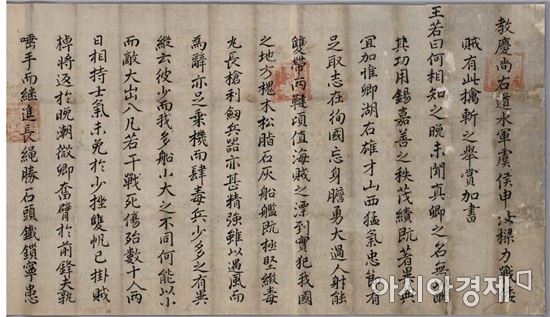 教慶尚右道水軍虞侯申汝樑力戰海
賊有此擒斬之舉賞加書
王若曰何相知之晚未聞真卿之名無酬
其功用錫嘉善之秩茂績旣著異典
宜加惟卿湖右雄才山西猛氣忠能有
足取志在徇國忘身膽勇大過人射能
雙帶兩鞬頃值海賊之漂到實犯我國
之地方槐木松脂石灰船艦旣極堅緻毒
丸長槍利劒兵器亦甚精強雖以遇風而
爲辭亦足乗機而肆毒兵少多之有異
縱云彼少而我多船小大之不同何能以小
而敵大出入凡若干戰死傷殆數十人兩
日相持士氣未免於少挫雙帆已掛賊
棹將返於晚潮微卿奮臂於前鋒夫孰
唾手而繼進長繩勝石頭鐵鎖寧患
아시아경제